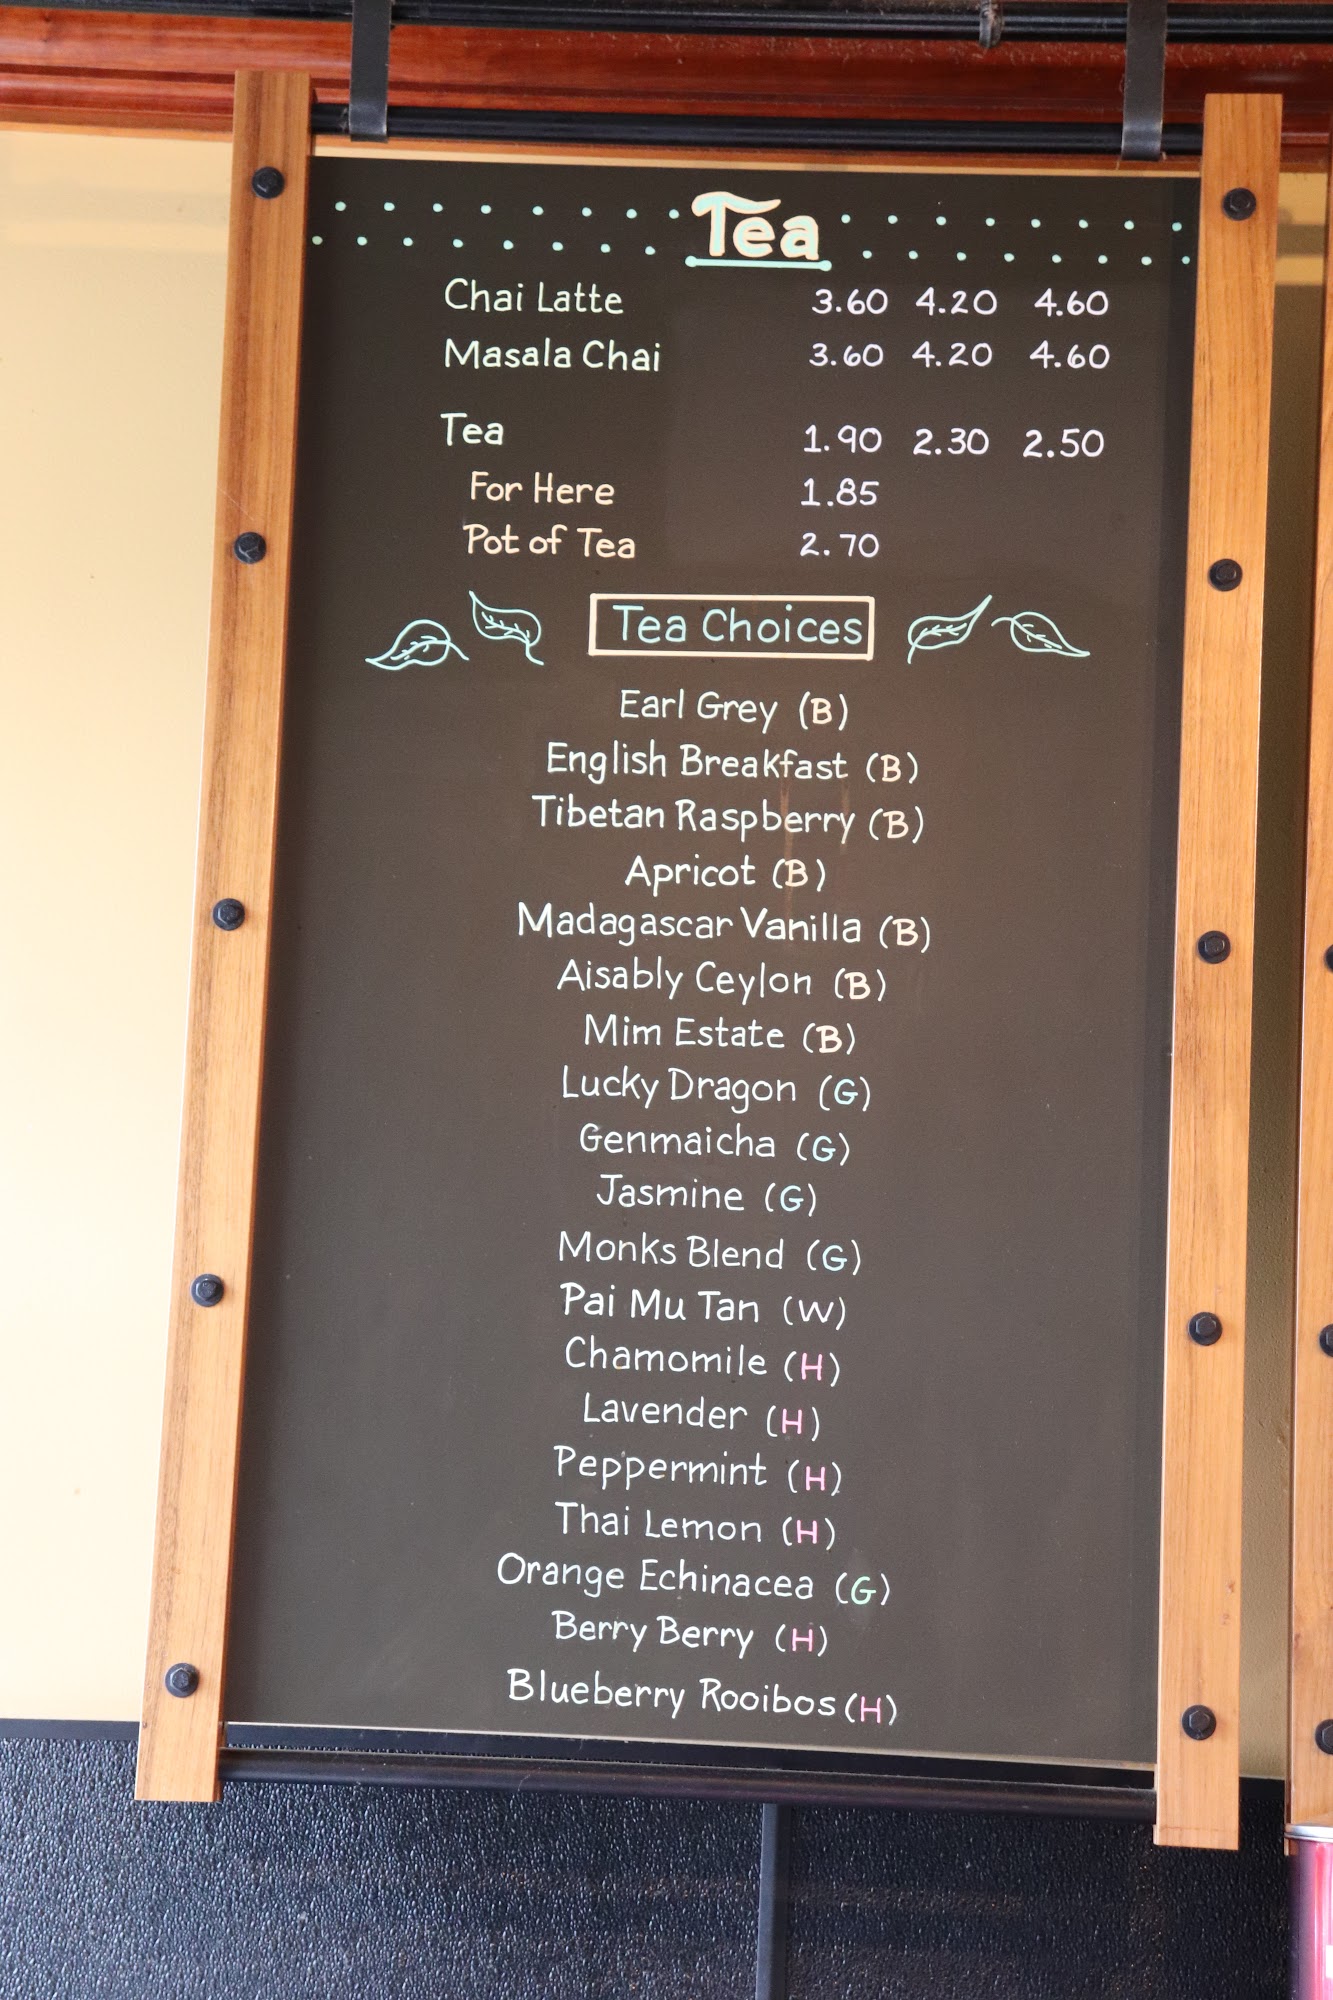 Tea
Chai Latte 3.60 4.20 4.60
Masala Chai 3.60 4.20 4.60
Tea 1.90 2.30 2.50
For Here 1.85
Pot of Tea 2.70
Tea Choices
Earl Grey (B)
English Breakfast (B)
Tibetan Raspberry (B)
Apricot (B)
Madagascar Vanilla (B)
Aisably Ceylon (B)
Mim Estate (B)
Lucky Dragon (G)
Genmaicha (G)
Jasmine (G)
Monks Blend (G)
Pai Mu Tan (W)
Chamomile (H)
Lavender (H)
Peppermint (H)
Thai Lemon (H)
Orange Echinacea (G)
Berry Berry (H)
Blueberry Rooibos (H)